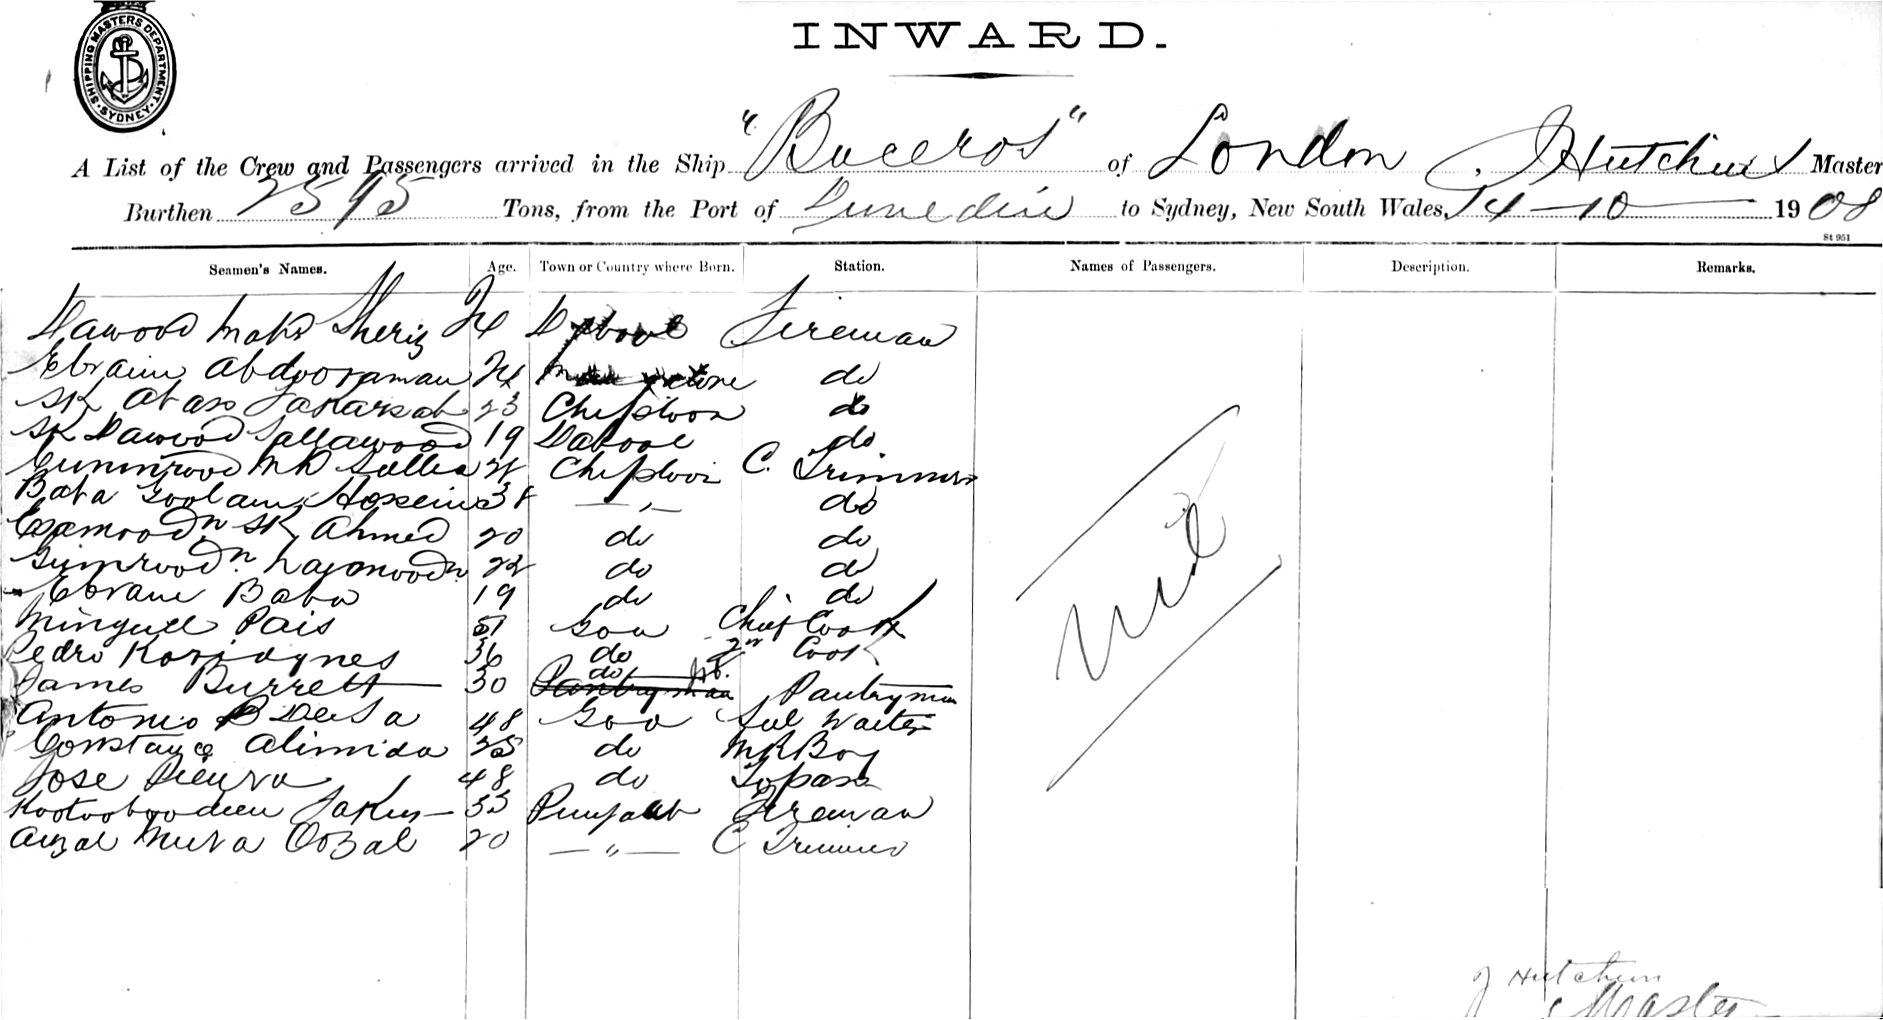 SHIPPING MASTERS DEPARTMENT · SYDNEY ·
INWARD.
A List of the Crew and Passengers arrived in the Ship "Buceros" of London, J Hutchins Master
Burthen 2595 Tons, from the Port of Dunedin to Sydney, New South Wales, 14-10- 1908
St 951
Seamen's Names. Age. Town or Country where Born. Station. Names of Passengers. Description. Remarks.
Dawood Mahd Sheriz 24 Dabool Fireman
Ebraim Abdooraman 24 do
Sk Abas 23 Chiploon do
Sk Dawood 19 Dabool do
MD 24 Chiploon C. Trimmer
Baba Goolam Hossein 38 — " — do
Sk Ahmed 20 do do
22 do do
Ebram Baba 19 do do
Minguel Pais 51 Goa Chief Cook
Pedro Rodrigues 36 do 2nd Cook
James Burrett 30 do Pantryman Pantryman
Antonio B DeSa 48 Goa Waiter
Constance Alimida 25 do Boy
Jose 48 do Topass
33 Punjaub Fireman
20 — " — C Trimmer
Nil
J Hutchins
Master